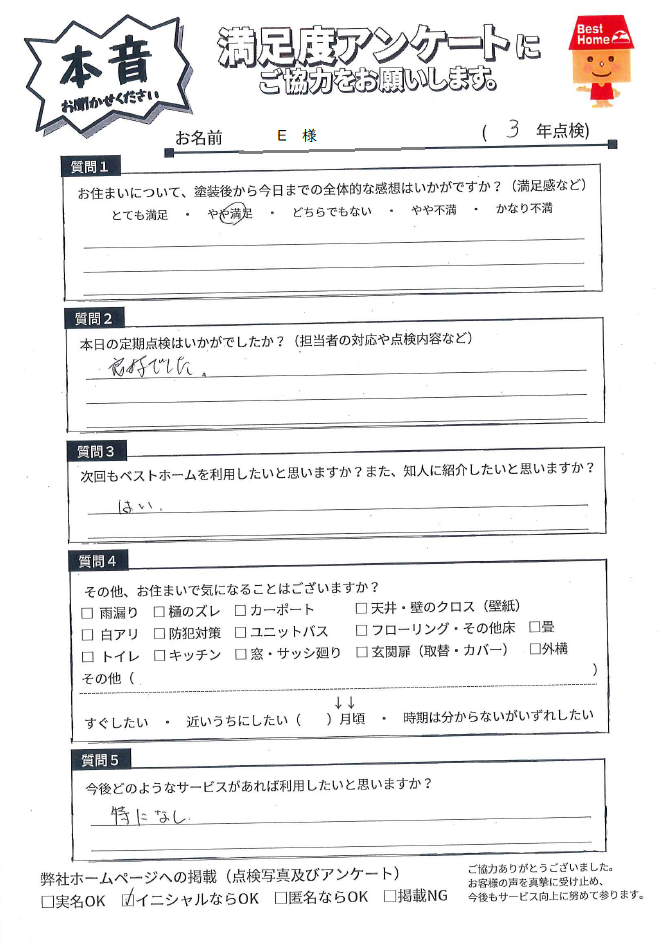 本音
お聞かせください
満足度アンケートに
ご協力をお願いします。
Best
Home
お名前 E 様 ( 3 年点検)
質問1
お住まいについて、塗装後から今日までの全体的な感想はいかがですか？（満足感など）
とても満足 ・ やや満足 ・ どちらでもない ・ やや不満 ・ かなり不満
質問2
本日の定期点検はいかがでしたか？（担当者の対応や点検内容など）
良好でした。
質問3
次回もベストホームを利用したいと思いますか？また、知人に紹介したいと思いますか？
はい.
質問4
その他、お住まいで気になることはございますか？
□ 雨漏り □ 樋のズレ □ カーポート □ 天井・壁のクロス（壁紙）
□ 白アリ □ 防犯対策 □ ユニットバス □ フローリング・その他床 □畳
□ トイレ □ キッチン □ 窓・サッシ廻り □ 玄関扉（取替・カバー） □外構
その他（ ）
↓↓
すぐしたい ・ 近いうちにしたい（ ）月頃 ・ 時期は分からないがいずれしたい
質問5
今後どのようなサービスがあれば利用したいと思いますか？
特になし.
弊社ホームページへの掲載（点検写真及びアンケート）
□実名OK ☑イニシャルならOK □匿名ならOK □掲載NG
ご協力ありがとうございました。
お客様の声を真摯に受け止め、
今後もサービス向上に努めて参ります。